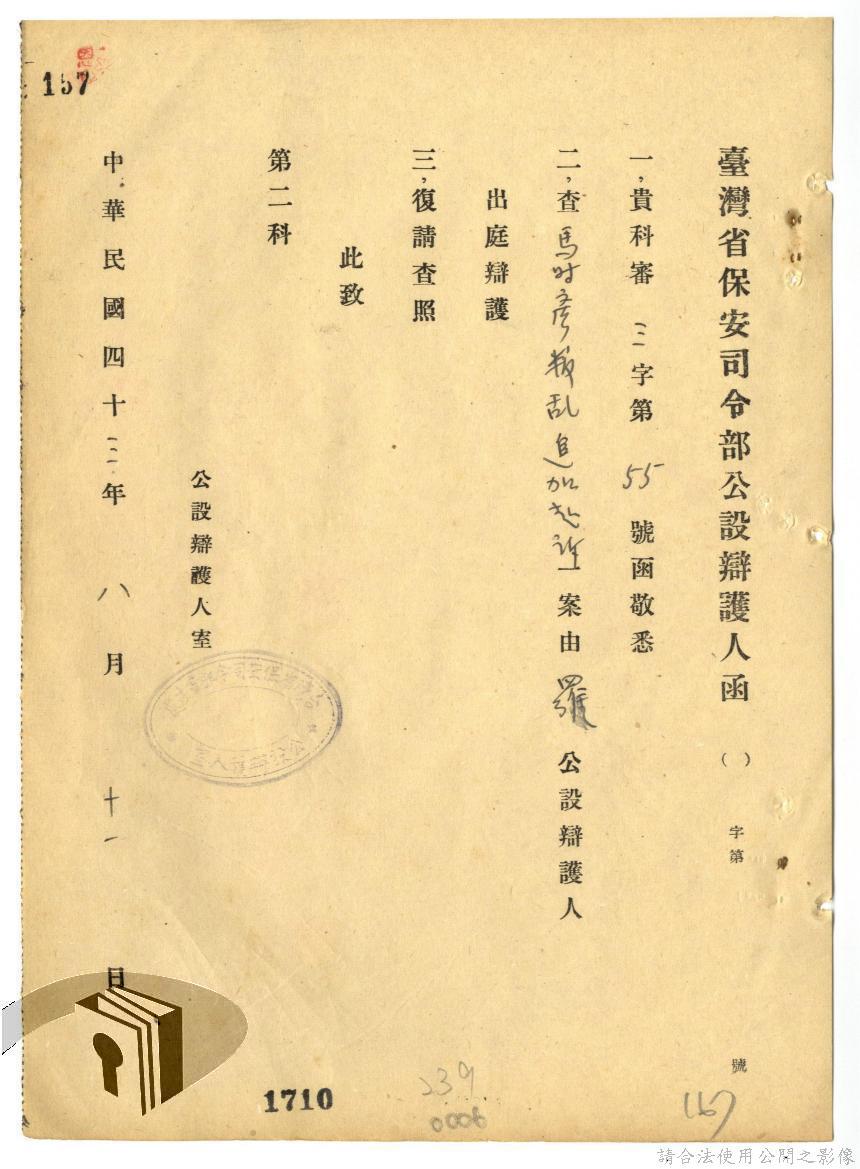 臺灣省保安司令部公設辯護人函 ( ) 字第 號
一，貴科審 三 字第 55 號函敬悉
二，查馬時彥叛乱追加起訴一案由 羅 公設辯護人
出庭辯護
三，復請查照
此致
第二科
公設辯護人室
中華民國四十三年 八 月 十一 日
157
1710
239
0006
167
請合法使用公開之影像